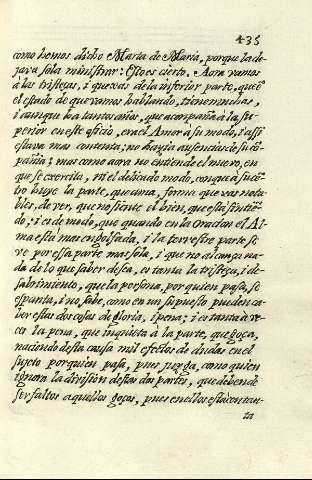 435
como hemos dicho Marta de Maria, porque la de-
java sola ministrar: Esto es cierto. Aora vamos
à las tristeças, i quexas de la inferior parte, que en
el estado de que vamos hablando, tiene muchas,
i aunque ha tantos años, que acompaña à la su-
perior en este oficio, era el Amor à su modo, i assi
estava mas contenta; no hayia ausencias de su cõ-
pañia; mas como aora no entiende el nuevo, en
que se exercita, ni el delicado modo, con que à su ...
huye la parte, que ama, forma quexas nota-
bles, de ver, que no siente el bien, que està sintiẽ-
do; i es de modo, que quando en la Oracion el Al-
ma està mas engolfada, i la terrestre parte se
ve por essa parte mas sola, i que no alcança na-
da de lo que saber desea, es tanta la tristeça, i de-
sabrimiento, que la persona, por quien passa, se
espanta, i no sabe, como en un supuesto pueden ca-
ber estas dos cosas de gloria, i pena; i es tanta à ve-
ces la pena, que inquieta à la parte, que goça,
naciendo desta causa mil efectos de dudas en el
sujeto por quien pasa, pues juzga, como quien
ignora la division destas dos partes, que deben de
ser faltos aquellos goços, pues en ellos està contan-
ta